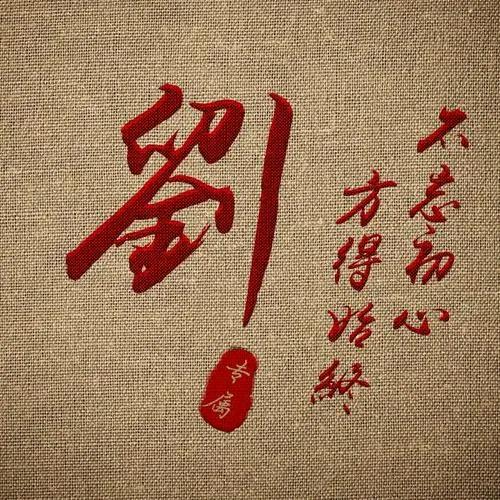 劉
专属
不忘初心
方得始終